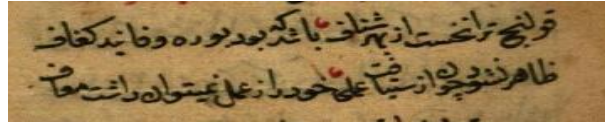 قولنج ترا نخست از بهر شناف باشد که بود بوره و فانید کفاف
ظاهر نشود چون از شیافت عملی خود را ز عمل نمیتوان داشت معاف